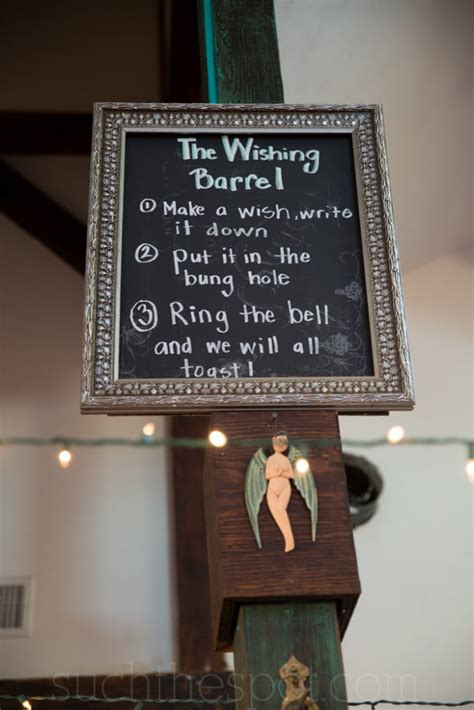 The Wishing
Barrel
① Make a wish, write
it down
② put it in the
bung hole
③ Ring the bell
and we will all
toast!
suchthespot.com